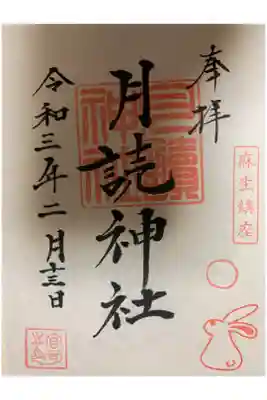 奉拝
麻生鎮座
月読神社
令和三年二月十三日